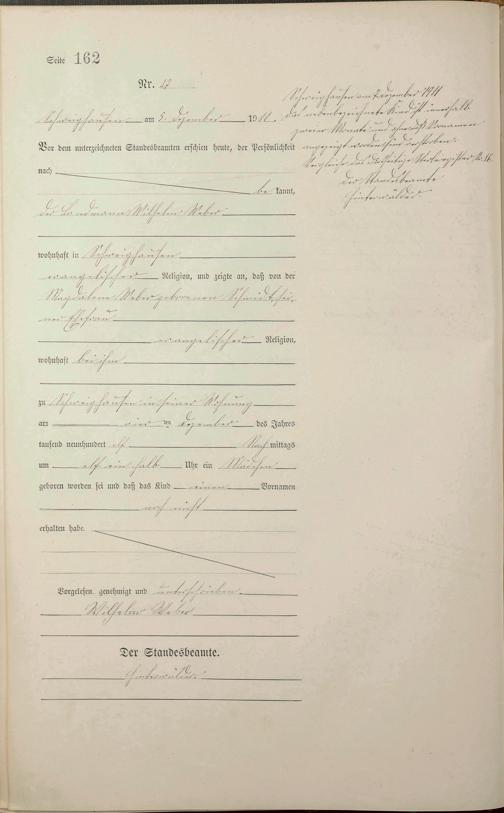 Seite 162
Nr. 12
Schweighausen am 5. Dezember 1911.
Vor dem unterzeichneten Standesbeamten erschien heute, der Persönlichkeit
nach
be kannt,
der Landmann Wilhelm Weber
wohnhaft in Schweighausen
evangelischer Religion, und zeigte an, daß von der
Magdalena Weber geborenen Schmidt, sei-
ner Ehefrau
evangelischer Religion,
wohnhaft bei ihm
zu Schweighausen in seiner Wohnung
am vier ten Dezember des Jahres
tausend neunhundert elf Nach mittags
um elf ein halb Uhr ein Mädchen
geboren worden sei und daß das Kind einen Vornamen
noch nicht
erhalten habe.
Vorgelesen, genehmigt und unterschrieben.
Wilhelm Weber
Der Standesbeamte.
Schweighausen am Dezember 1911
Das nebenbezeichnete Kind ist innerhalb
zweier Monate und ohne daß Vornamen
angezeigt worden sind verstorben.
Vergleiche das diesseitige Sterberegister No. 16.
Der Standesbeamte